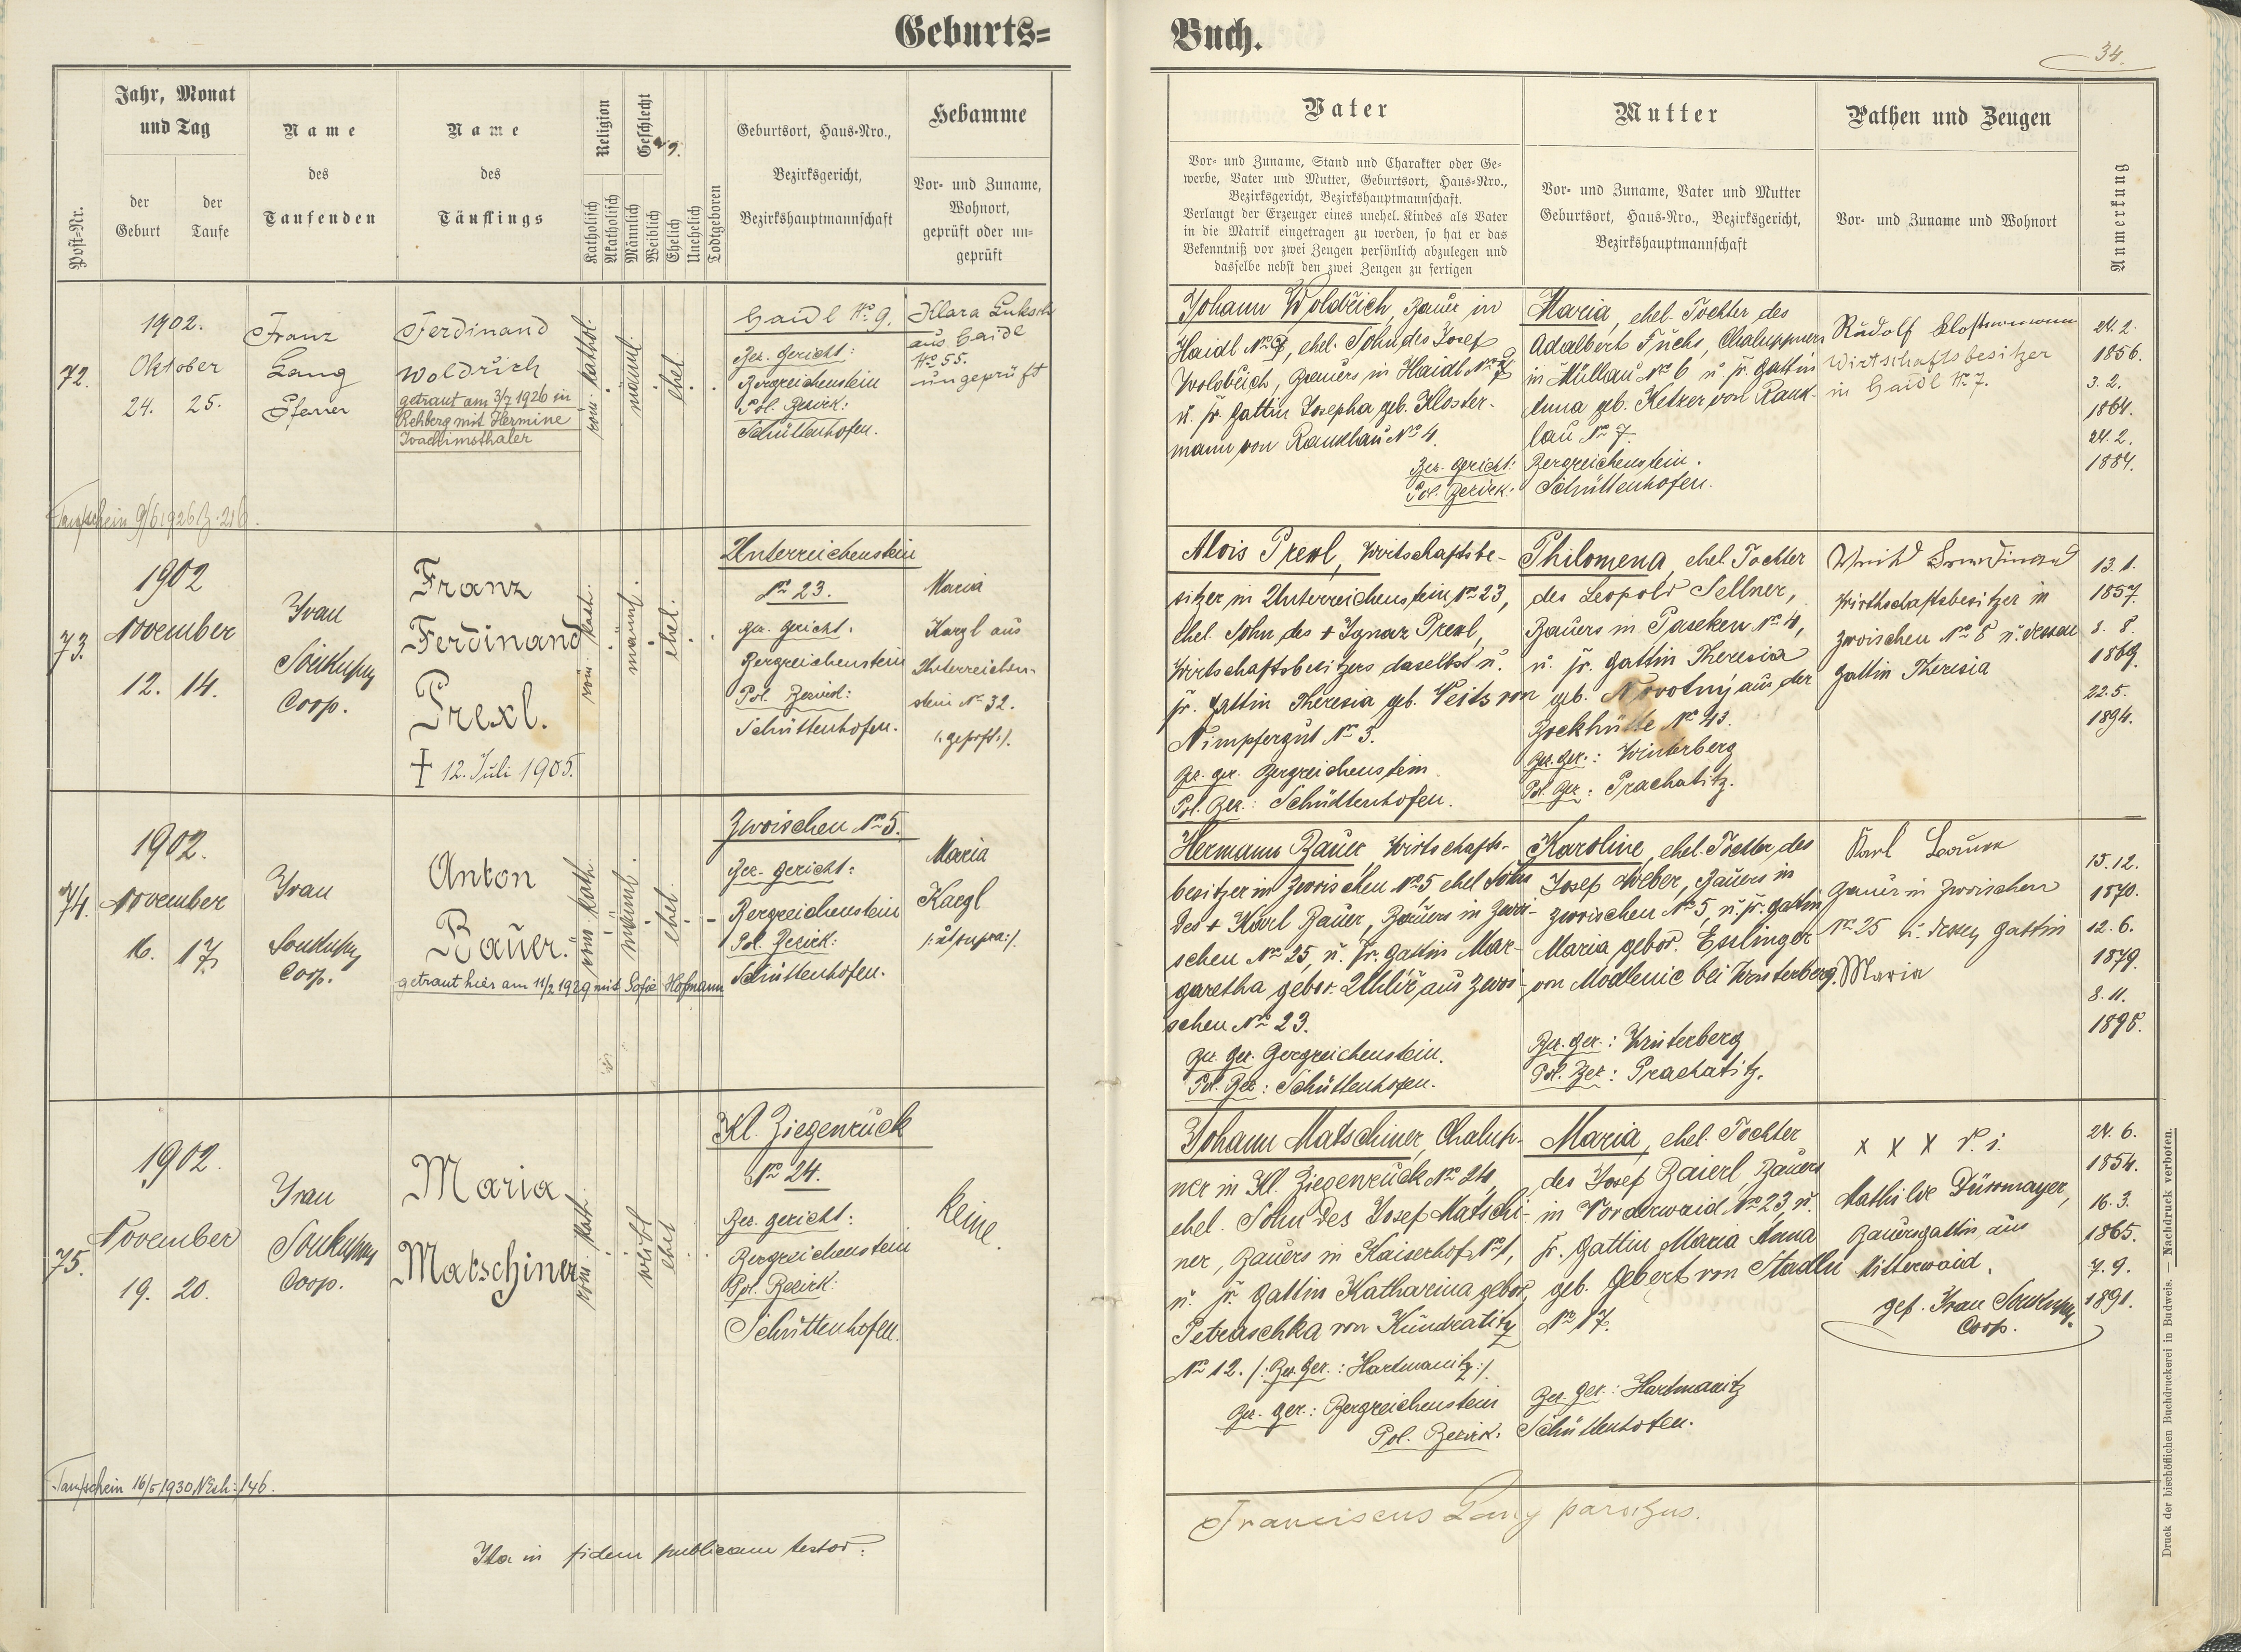 Geburts=
Buch.
34.
Post-Nr.
Jahr, Monat
und Tag
der
Geburt
der
Taufe
Name
des
Taufenden
Name
des
Täuflings
Religion
Katholisch
Akatholisch
Geschlecht
Männlich
Weiblich
Ehelich
Unehelich
Todtgeboren
Geburtsort, Haus-Nro.,
Bezirksgericht,
Bezirkshauptmannschaft
Hebamme
Vor- und Zuname,
Wohnort,
geprüft oder un-
geprüft
Vater
Vor- und Zuname, Stand und Charakter oder Ge-
werbe, Vater und Mutter, Geburtsort, Haus-Nro.,
Bezirksgericht, Bezirkshauptmannschaft.
Verlangt der Erzeuger eines unehel. Kindes als Vater
in die Matrik eingetragen zu werden, so hat er das
Bekenntniß vor zwei Zeugen persönlich abzulegen und
dasselbe nebst den zwei Zeugen zu fertigen
Mutter
Vor- und Zuname, Vater und Mutter
Geburtsort, Haus-Nro., Bezirksgericht,
Bezirkshauptmannschaft
Pathen und Zeugen
Vor- und Zuname und Wohnort
Anmerkung
72.
1902.
Oktober
24. 25.
Franz
Lang
Pfarrer
Ferdinand
Woldřich
getraut am 3/7 1926 in
Rehberg mit Hermine
Joachimsthaler
röm. kathol.
männl.
ehel.
Haidl No. 9.
Bez. Gericht:
Bergreichenstein
Pol. Bezirk:
Schüttenhofen.
Klara Luksch
aus Haidl
No. 55.
ungeprüft
Taufschein 9/6 1926 Z. 216.
Johann Woldřich, Bauer in
Haidl No. 9, ehel. Sohn des Josef
Woldřich, Bauers in Haidl No. 9
u. sr. Gattin Josepha geb. Kloster-
mann von Rauklau No. 4.
Bez. Gericht:
Pol. Bezirk:
Maria, ehel. Tochter des
Adalbert Fuchs, Chaluppners
in Müllau No. 6 u. sr. Gattin
Anna geb. Ketzer von Rauk-
lau No. 7.
Bergreichenstein.
Schüttenhofen.
Rudolf Klostermann
Wirtschaftsbesitzer
in Haidl No. 7.
24. 2.
1856.
3. 2.
1864.
24. 2.
1884.
73.
1902
November
12. 14.
Ivan
Soukup
Coop.
Franz
Ferdinand
Prexl.
† 12. Juli 1905.
röm. kath.
männl.
ehel.
Unterreichenstein
No. 23.
Bez. Gericht:
Bergreichenstein
Pol. Bezirk:
Schüttenhofen.
Maria
Kargl aus
Unterreichen-
stein No. 32.
/: geprft :/.
Alois Prexl, Wirtschaftsbe-
sitzer in Unterreichenstein No. 23,
ehel. Sohn des + Ignaz Prexl,
Wirtschaftsbesitzers daselbst u.
sr. Gattin Theresia geb. Veits von
Nimpfergut No. 3.
Bez. Ger. Bergreichenstein.
Pol. Bez.: Schüttenhofen.
Philomena, ehel. Tochter
des Leopold Sellner,
Bauers in Paseken No. 4,
u. sr. Gattin Theresia
geb. Novotný aus der
Bockhütte No. 43.
Bez. Ger.: Winterberg
Pol. Bez.: Prachatitz.
Wirthschaftsbesitzer in
Zwoischen No. 8 u. dessen
Gattin Theresia
13. 1.
1857.
8. 8.
1869.
22. 5.
1894.
74.
1902.
November
16. 17.
Ivan
Soukup
Coop.
Anton
Bauer.
getraut hier am 11/2 1929 mit Sofie Hofmann
röm. kath.
männl.
ehel.
Zwoischen No. 5.
Bez. Gericht:
Bergreichenstein
Pol. Bezirk:
Schüttenhofen.
Maria
Kargl
/: ut supra :/.
Hermann Bauer, Wirtschafts-
besitzer in Zwoischen No. 5 ehel. Sohn
des + Karl Bauer, Bauers in Zwoi-
schen No. 25, u. sr. Gattin Mar-
garetha gebor. Uhlíř aus Zwoi-
schen No. 23.
Bez. Ger. Bergreichenstein.
Pol. Bez.: Schüttenhofen.
Karoline, ehel. Tochter des
Josef Weber, Bauers in
Zwoischen No. 5, u. sr. Gattin
Maria gebor. Esslinger
von Modlenic bei Winterberg.
Bez. Ger.: Winterberg
Pol. Bez.: Prachatitz.
Karl Bauer
Bauer in Zwoischen
No. 25 u. dessen Gattin
Maria
15. 12.
1870.
12. 6.
1879.
8. 11.
1898.
75.
1902.
November
19. 20.
Ivan
Soukup
Coop.
Maria
Matschiner
röm. kath.
weibl.
ehel.
Kl. Ziegenruck
No. 24.
Bez. Gericht:
Bergreichenstein
Pol. Bezirk:
Schüttenhofen.
keine.
Taufschein 16/5 1930 146.
Johann Matschiner, Chalup-
ner in Kl. Ziegenruck No. 24,
ehel. Sohn des Josef Matschi-
ner, Bauers in Kaiserhof No. 1,
u. sr. Gattin Katharina gebor.
Petraschka von Kundratitz
No. 12. /: Bez. Ger.: Hartmanitz :/.
Bez. Ger.: Bergreichenstein
Pol. Bezirk:
Maria, ehel. Tochter
des Josef Baierl, Bauers
in Vorderwaid No. 23, u.
sr. Gattin Maria Anna
geb. Gebert von Stadln
No. 17.
Bez. Ger.: Hartmanitz
Schüttenhofen.
x x x
Mathilde Dürrmayer,
Bauersgattin aus
Mitterwaid.
gef. Ivan Soukup,
Coop.
24. 6.
1854.
16. 3.
1865.
7. 9.
1891.
Ita in fidem publicam testor:
Franciscus Lang parochus.
Druck der bischöflichen Buchdruckerei in Budweis. — Nachdruck verboten.